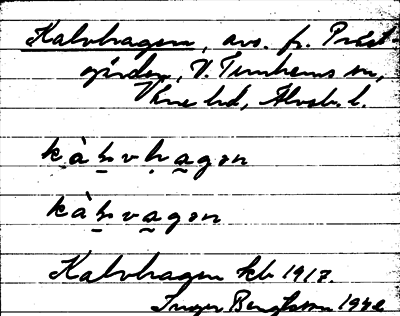 Kalvhagen, avs. fr. Präst-
gården, V. Tunhems sn,
Väne hd, Älvsb. l.
kàḷvḥa̰gən
kàḷva̰gən
Kalvhagen kb 1917.
Inger Bengtsson 1942